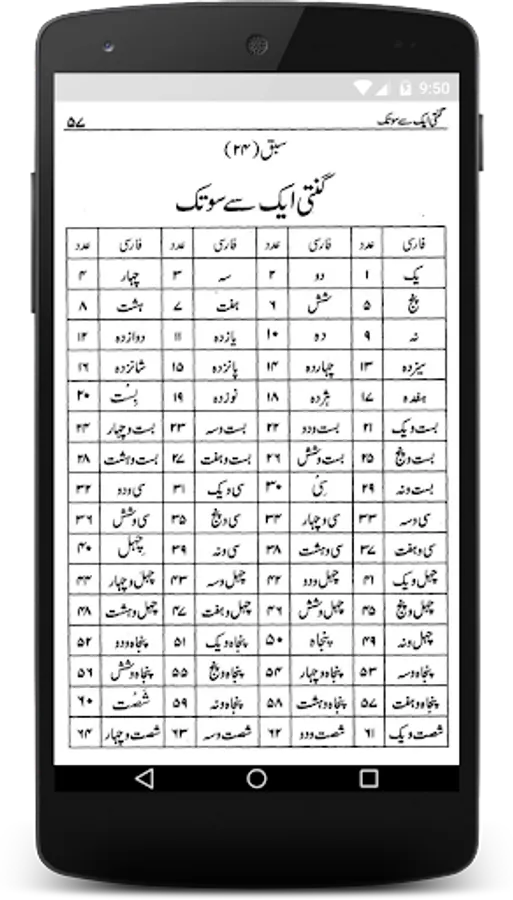 9:50
گنتی ایک سے سو تک ۵۷
سبق (۲۴)
گنتی ایک سے سو تک
فارسی عدد فارسی عدد فارسی عدد فارسی عدد
یک ۱ دو ۲ سہ ۳ چہار ۴
پنج ۵ شش ۶ ہفت ۷ ہشت ۸
نہ ۹ دہ ۱۰ یازدہ ۱۱ دوازدہ ۱۲
سیزدہ ۱۳ چہاردہ ۱۴ پانزدہ ۱۵ شانزدہ ۱۶
ہفدہ ۱۷ ہژدہ ۱۸ نوزدہ ۱۹ بِسْت ۲۰
بست و یک ۲۱ بست و دو ۲۲ بست و سہ ۲۳ بست و چہار ۲۴
بست و پنج ۲۵ بست و شش ۲۶ بست و ہفت ۲۷ بست و ہشت ۲۸
بست و نہ ۲۹ سی ۳۰ سی و یک ۳۱ سی و دو ۳۲
سی و سہ ۳۳ سی و چہار ۳۴ سی و پنج ۳۵ سی و شش ۳۶
سی و ہفت ۳۷ سی و ہشت ۳۸ سی و نہ ۳۹ چہل ۴۰
چہل و یک ۴۱ چہل و دو ۴۲ چہل و سہ ۴۳ چہل و چہار ۴۴
چہل و پنج ۴۵ چہل و شش ۴۶ چہل و ہفت ۴۷ چہل و ہشت ۴۸
چہل و نہ ۴۹ پنجاہ ۵۰ پنجاہ و یک ۵۱ پنجاہ و دو ۵۲
پنجاہ و سہ ۵۳ پنجاہ و چہار ۵۴ پنجاہ و پنج ۵۵ پنجاہ و شش ۵۶
پنجاہ و ہفت ۵۷ پنجاہ و ہشت ۵۸ پنجاہ و نہ ۵۹ شَصْت ۶۰
شصت و یک ۶۱ شصت و دو ۶۲ شصت و سہ ۶۳ شصت و چہار ۶۴